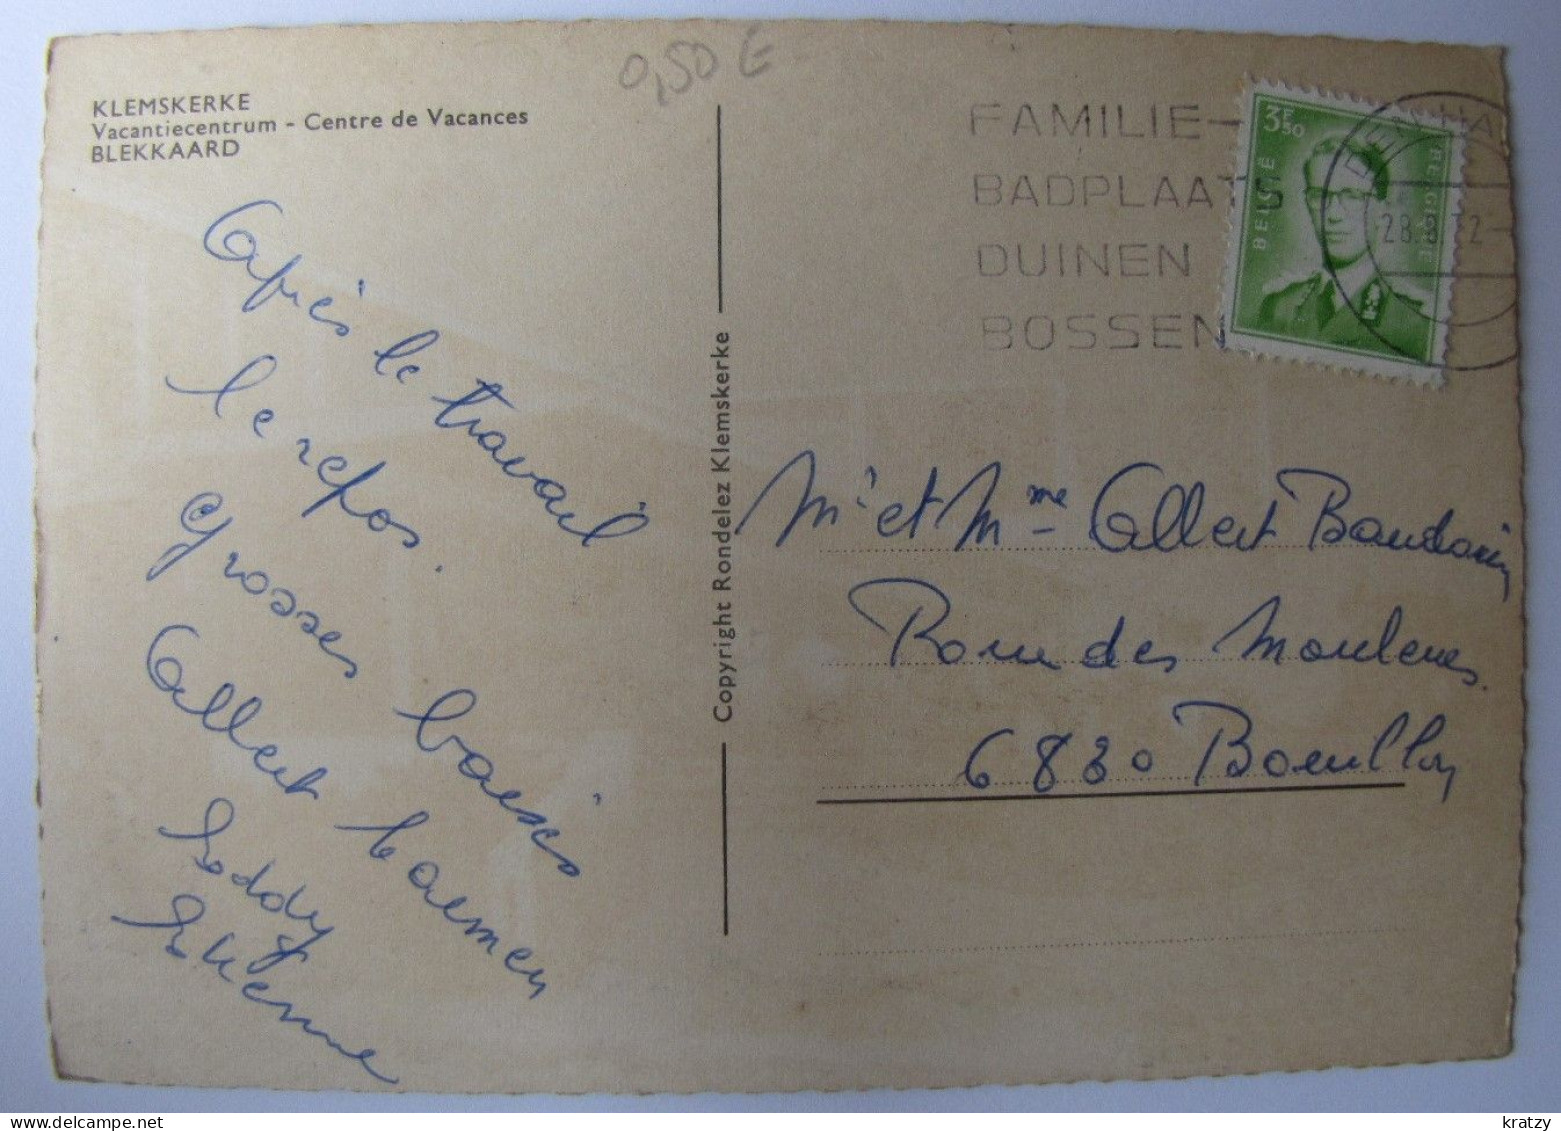 KLEMSKERKE
Vacantiecentrum - Centre de Vacances
BLEKKAARD
0,50 E
Après le travail
le repos.
grosses baisés
Albert Carmen
Eddy
Etienne
Copyright Rondelez Klemskerke
FAMILIE-
BADPLAATS
DUINEN
BOSSEN
3F50
BELGIË
BELGIQUE
28.8.72
Mr et Mme Albert Baudouin
Roue des Moulenes
6830 Bouillon
kratzy